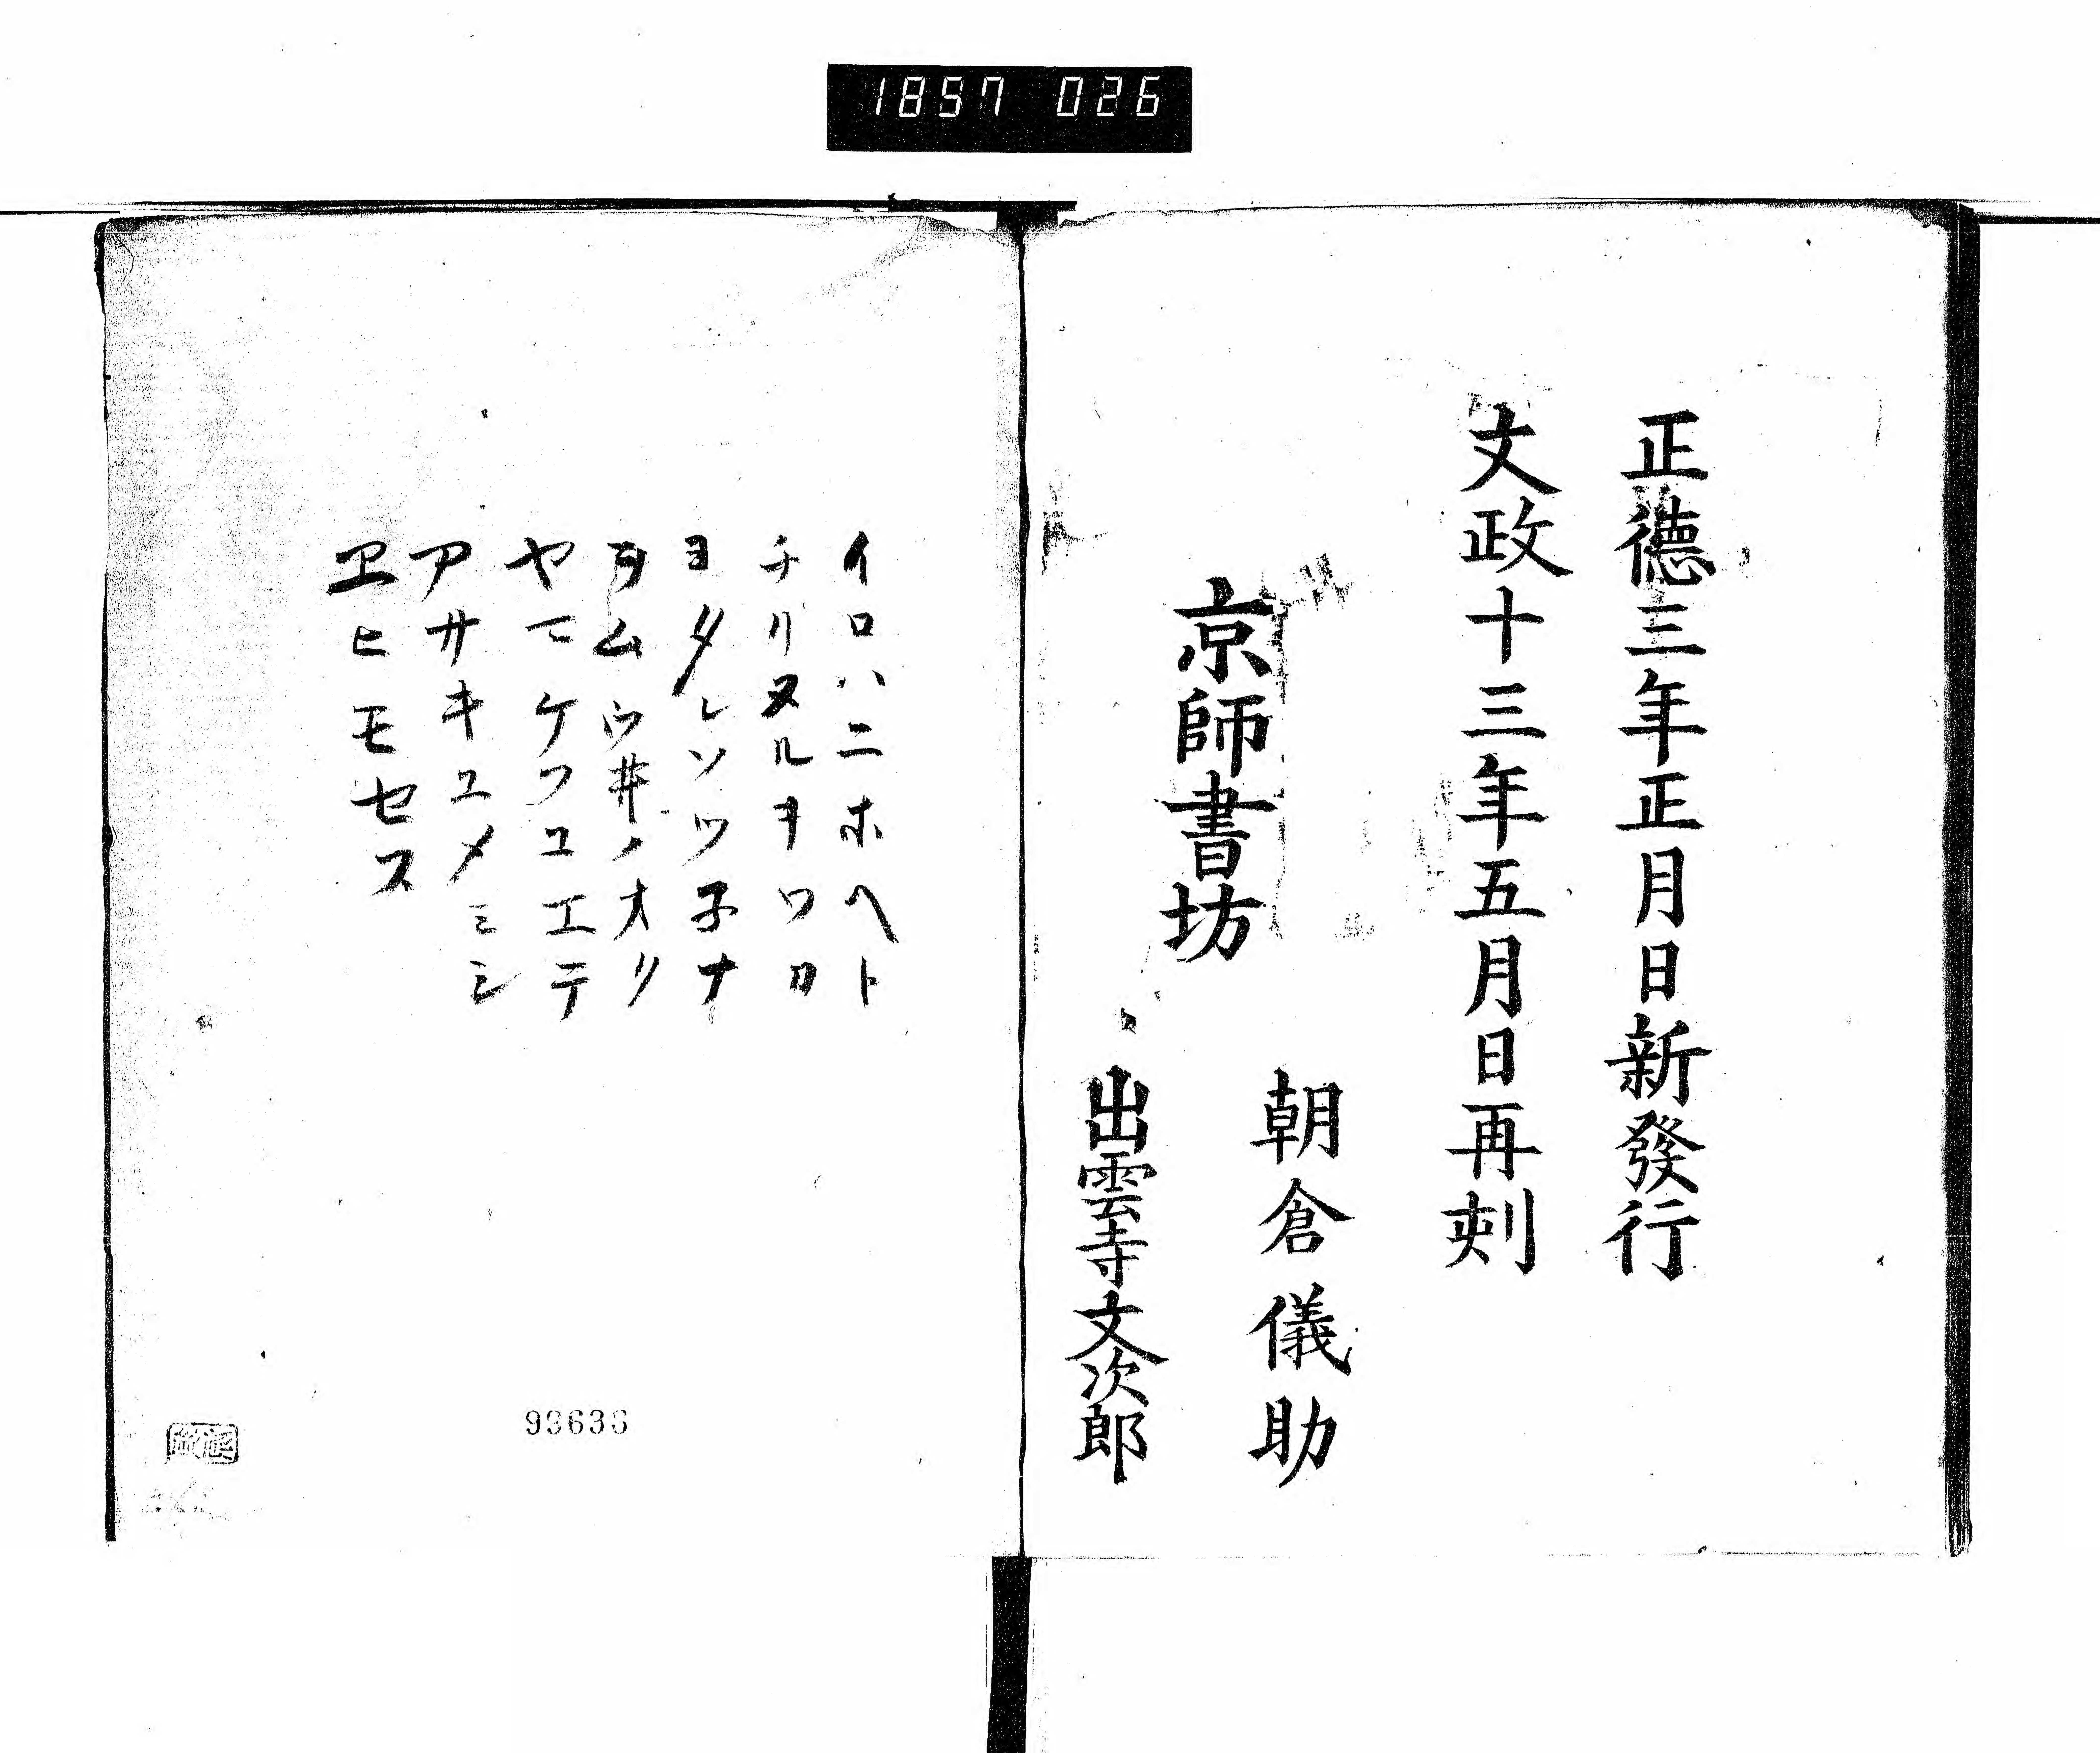 1857 026
正德三年正月日新發行
文政十三年五月日再刾
京師書坊
朝倉儀助
出雲寺文次郎
イロハニホヘト
チリヌルヲワカ
ヨタレソツ子ナ
ラムウ井ノオク
ヤマケフコエテ
アサキユメミシ
ヱヒモセス